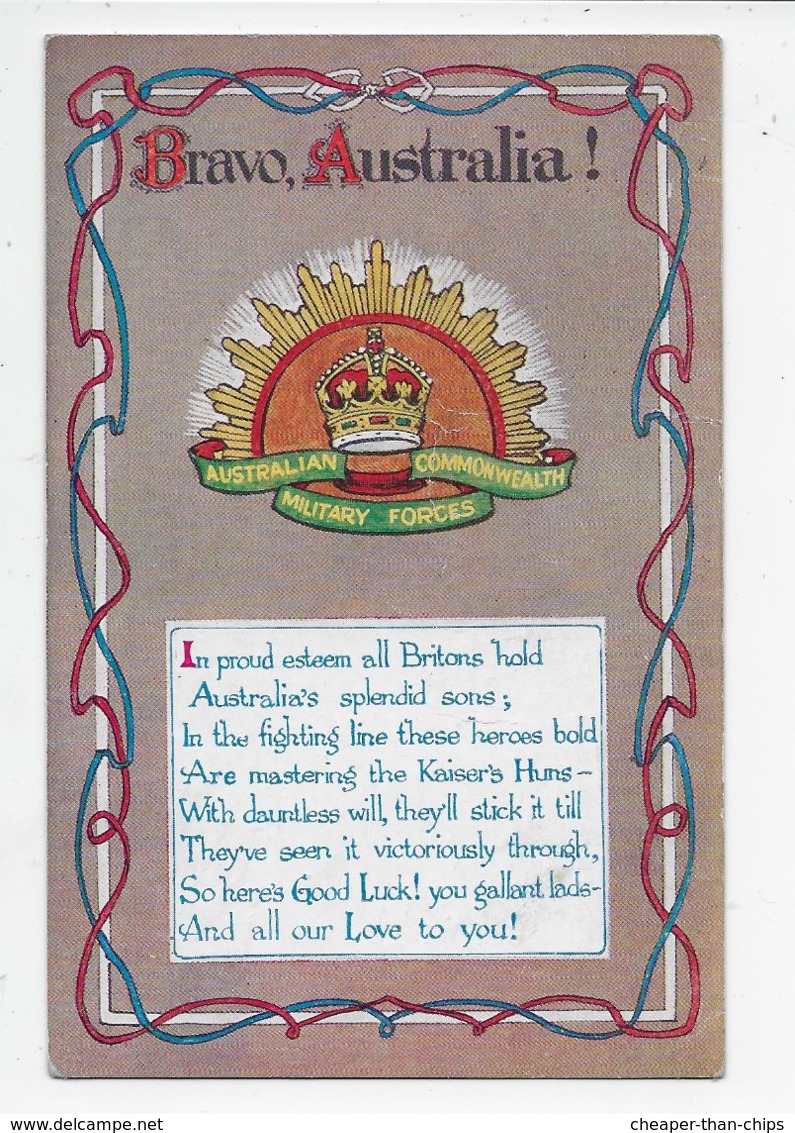 Bravo, Australia!
AUSTRALIAN COMMONWEALTH
MILITARY FORCES
In proud esteem all Britons hold
Australia's splendid sons;
In the fighting line these heroes bold
Are mastering the Kaiser's Huns-
With dauntless will, they'll stick it till
They've seen it victoriously through,
So here's Good Luck! you gallant lads-
And all our Love to you!
www.delcampe.net
cheaper-than-chips